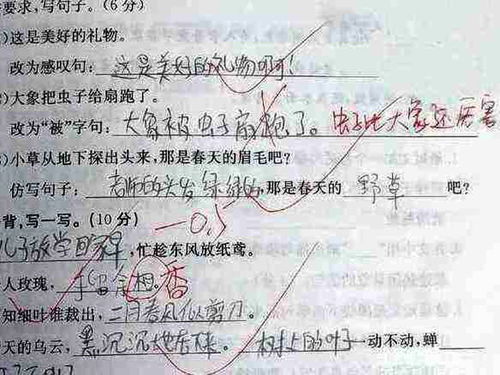 要求,写句子。(6分)
)这是美好的礼物。
改为感叹句:这是美好的礼物啊!
)大象把虫子给扇跑了。
改为“被”字句:大象被虫子扇跑了。虫子比大象还厉害
)小草从地下探出头来,那是春天的眉毛吧?
仿写句子:老师的头发绿绿的,那是春天的野草吧?
背,写一写。(10分) -0.5
儿子放学归来,忙趁东风放纸鸢。
人玫瑰,手留余相。香
知细叶谁裁出,二月春风似剪刀。
天的乌云,黑沉沉地压下来。树上的叶子一动不动,蝉